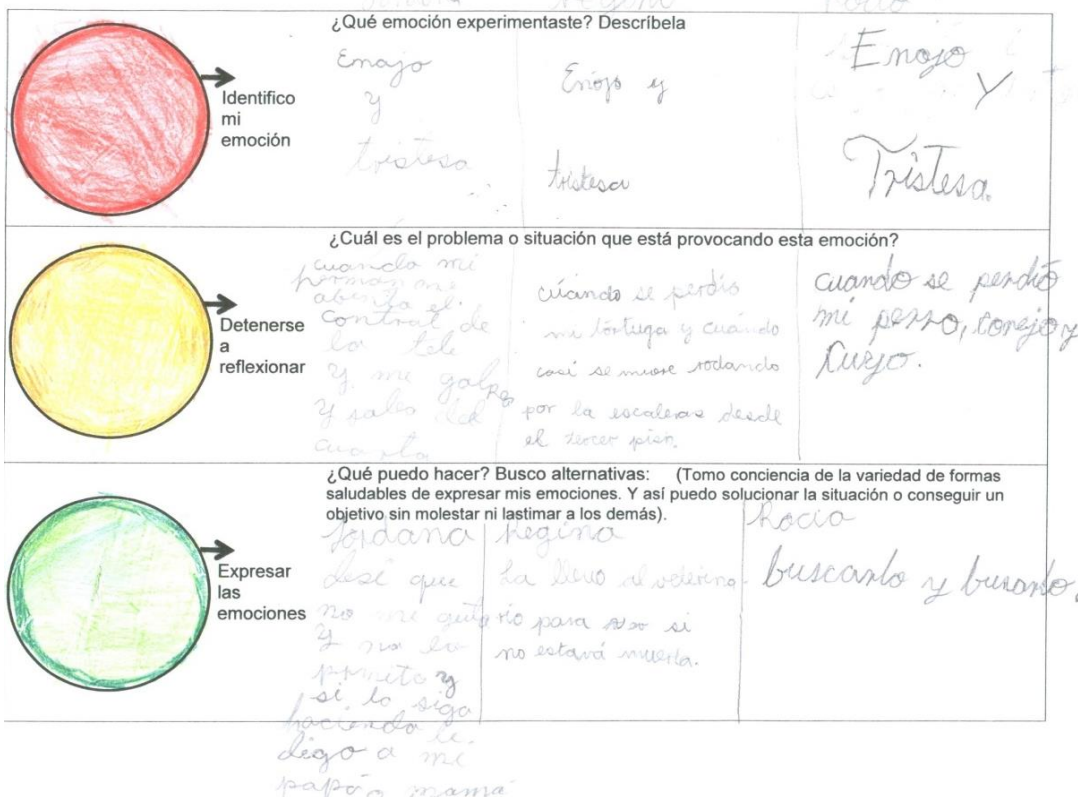 Regina Rocío
¿Qué emoción experimentaste? Descríbela
Identifico
mi
emoción
Enojo
y
tristesa
Enojo y
tristesa
Enojo
y
Tristesa.
¿Cuál es el problema o situación que está provocando esta emoción?
Detenerse
a
reflexionar
cuando mi
me
el
control de
la tele
y me golpea
y sales del
cuarto
cuando se perdió
mi tortuga y cuando
casi se muere rodando
por la escaleras desde
el tercer pisn.
cuando se perdió
mi perro, conejo y
Kuyo.
¿Qué puedo hacer? Busco alternativas: (Tomo conciencia de la variedad de formas
saludables de expresar mis emociones. Y así puedo solucionar la situación o conseguir un
objetivo sin molestar ni lastimar a los demás).
Expresar
las
emociones
Jordana
desi que
no me
y no lo
y
si lo siga
haciendo le
digo a mi
papá o mamá
Regina
La llevo al veterina-
rio para si
no estavá muerta.
Rocío
buscarlo y